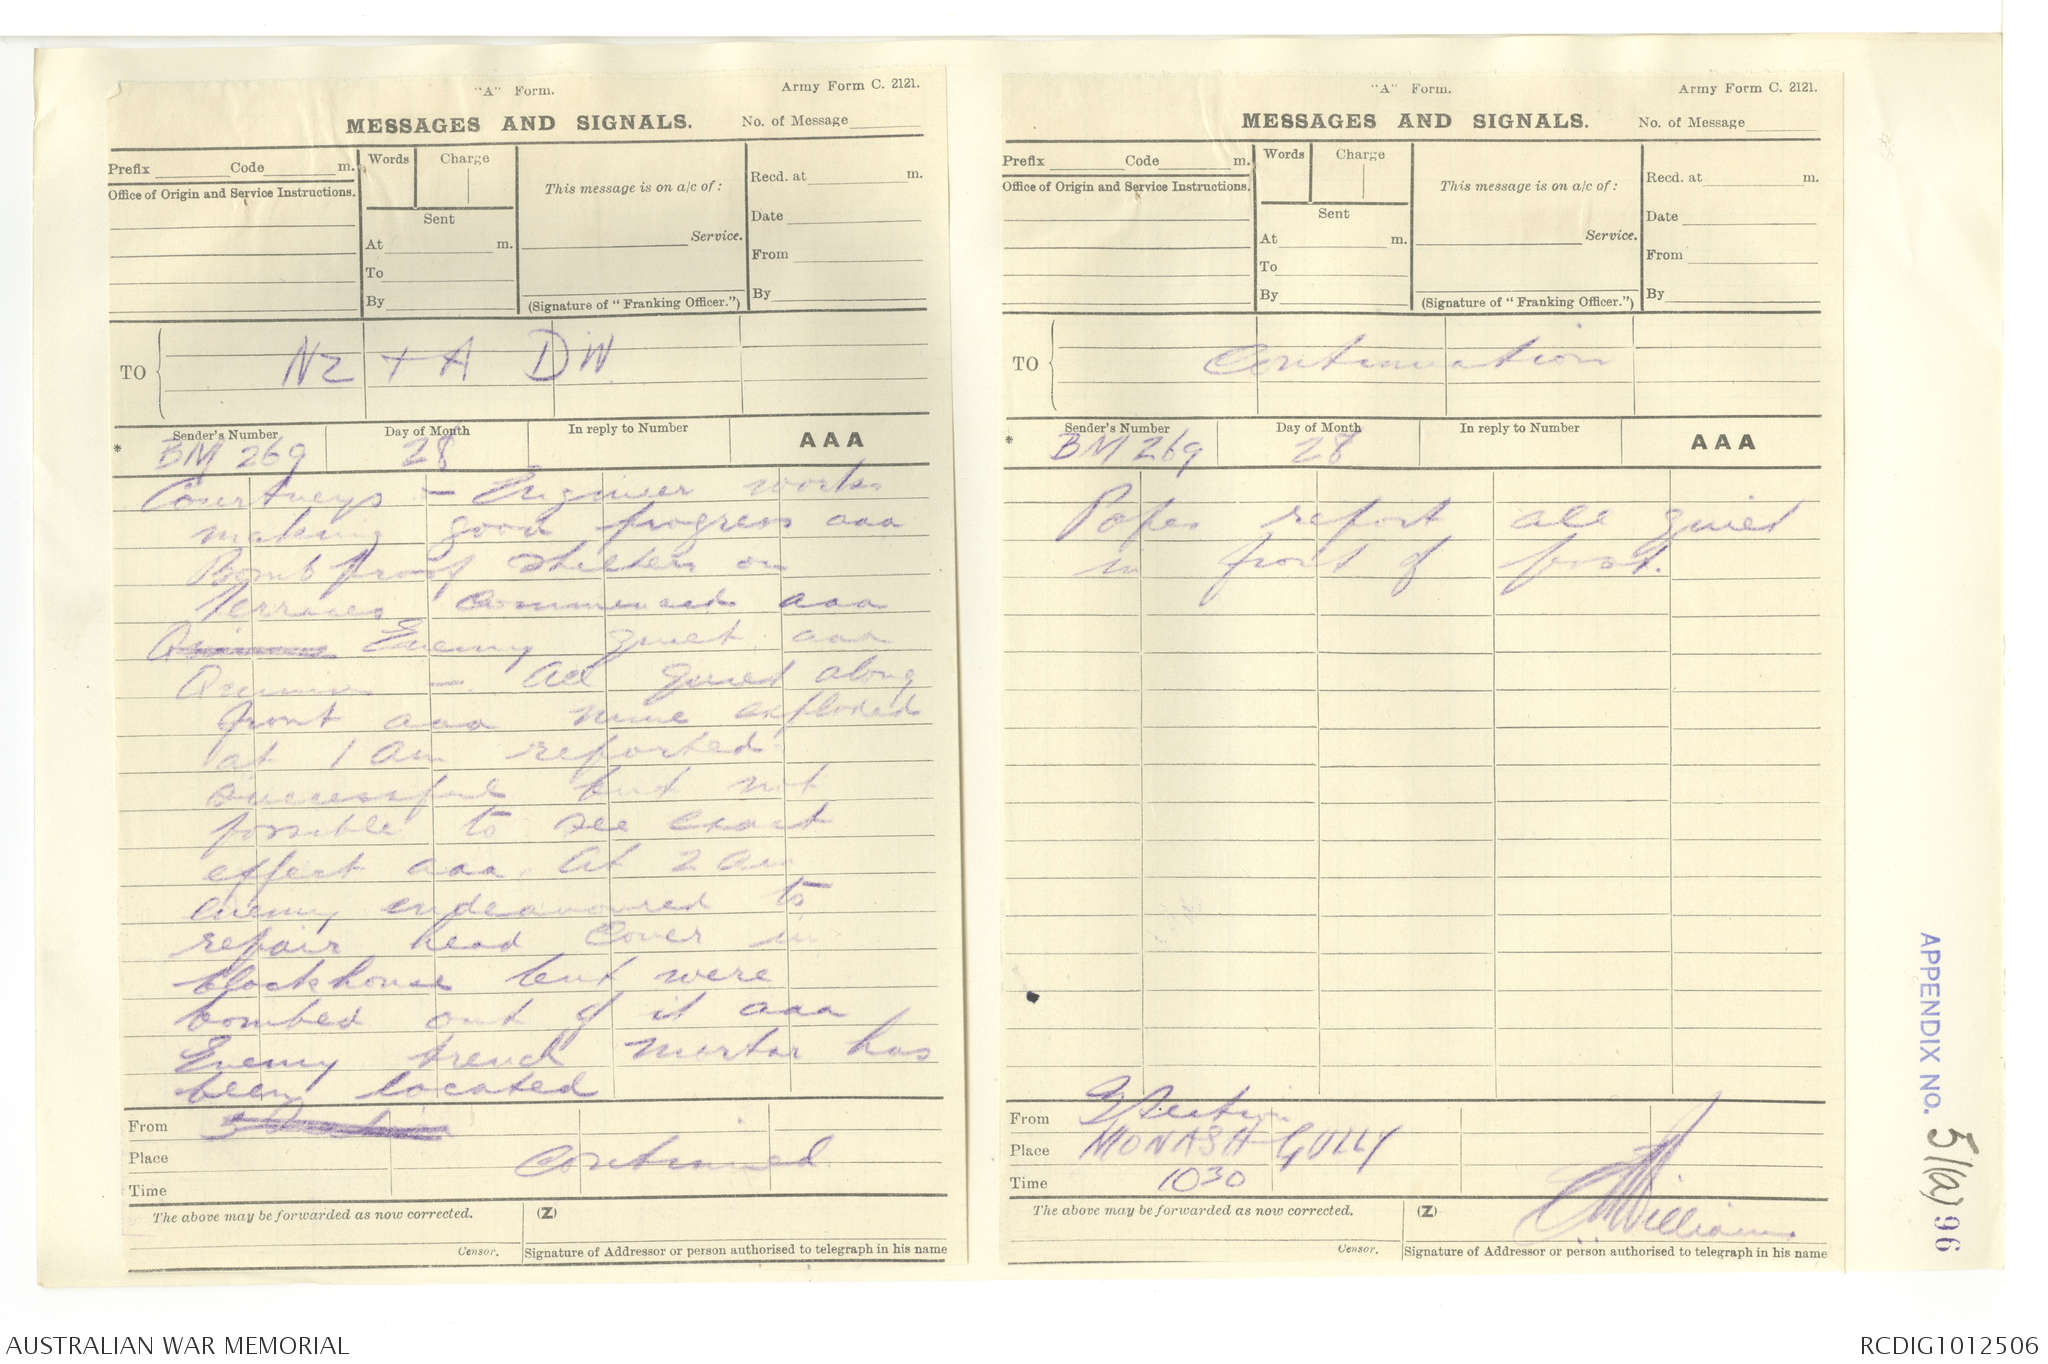 "A" Form.
Army Form C. 2121.
MESSAGES AND SIGNALS.
No. of Message
Prefix Code m.
Words Charge
This message is on a/c of:
Recd. at m.
Office of Origin and Service Instructions.
Sent
Date
At m.
Service.
From
To
By
(Signature of "Franking Officer.")
By
TO
NZ + A DIV
Sender's Number
Day of Month
In reply to Number
AAA
* BM 269
28
Courtneys - Engineer works
making good progress aaa
Bombproof shelters on
Terraces commenced aaa
Enemy quiet aaa
Quinns - All quiet along
front aaa mine exploded
at 1 am reported
successful but not
possible to see exact
effect aaa. At 2 am
enemy endeavoured to
repair head cover in
blockhouse but were
bombed out of it aaa
Enemy trench mortar has
been located
From
Place
Continued
Time
The above may be forwarded as now corrected.
(Z)
Censor.
Signature of Addressor or person authorised to telegraph in his name
"A" Form.
Army Form C. 2121.
MESSAGES AND SIGNALS.
No. of Message
Prefix Code m.
Words Charge
This message is on a/c of:
Recd. at m.
Office of Origin and Service Instructions.
Sent
Date
At m.
Service.
From
To
By
(Signature of "Franking Officer.")
By
TO
Continuation
Sender's Number
Day of Month
In reply to Number
AAA
* BM 269
28
Popes report all quiet
in front of post.
From
Section
Place
MONASH GULLY
Time
1030
The above may be forwarded as now corrected.
(Z)
Williams
Censor.
Signature of Addressor or person authorised to telegraph in his name
APPENDIX NO. 51(a) 96
AUSTRALIAN WAR MEMORIAL
RCDIG1012506